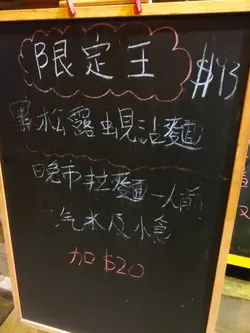 限定王 $43
黑松露蜆沾麵
晚市拉麵一人前
汽水及小食
加 $20